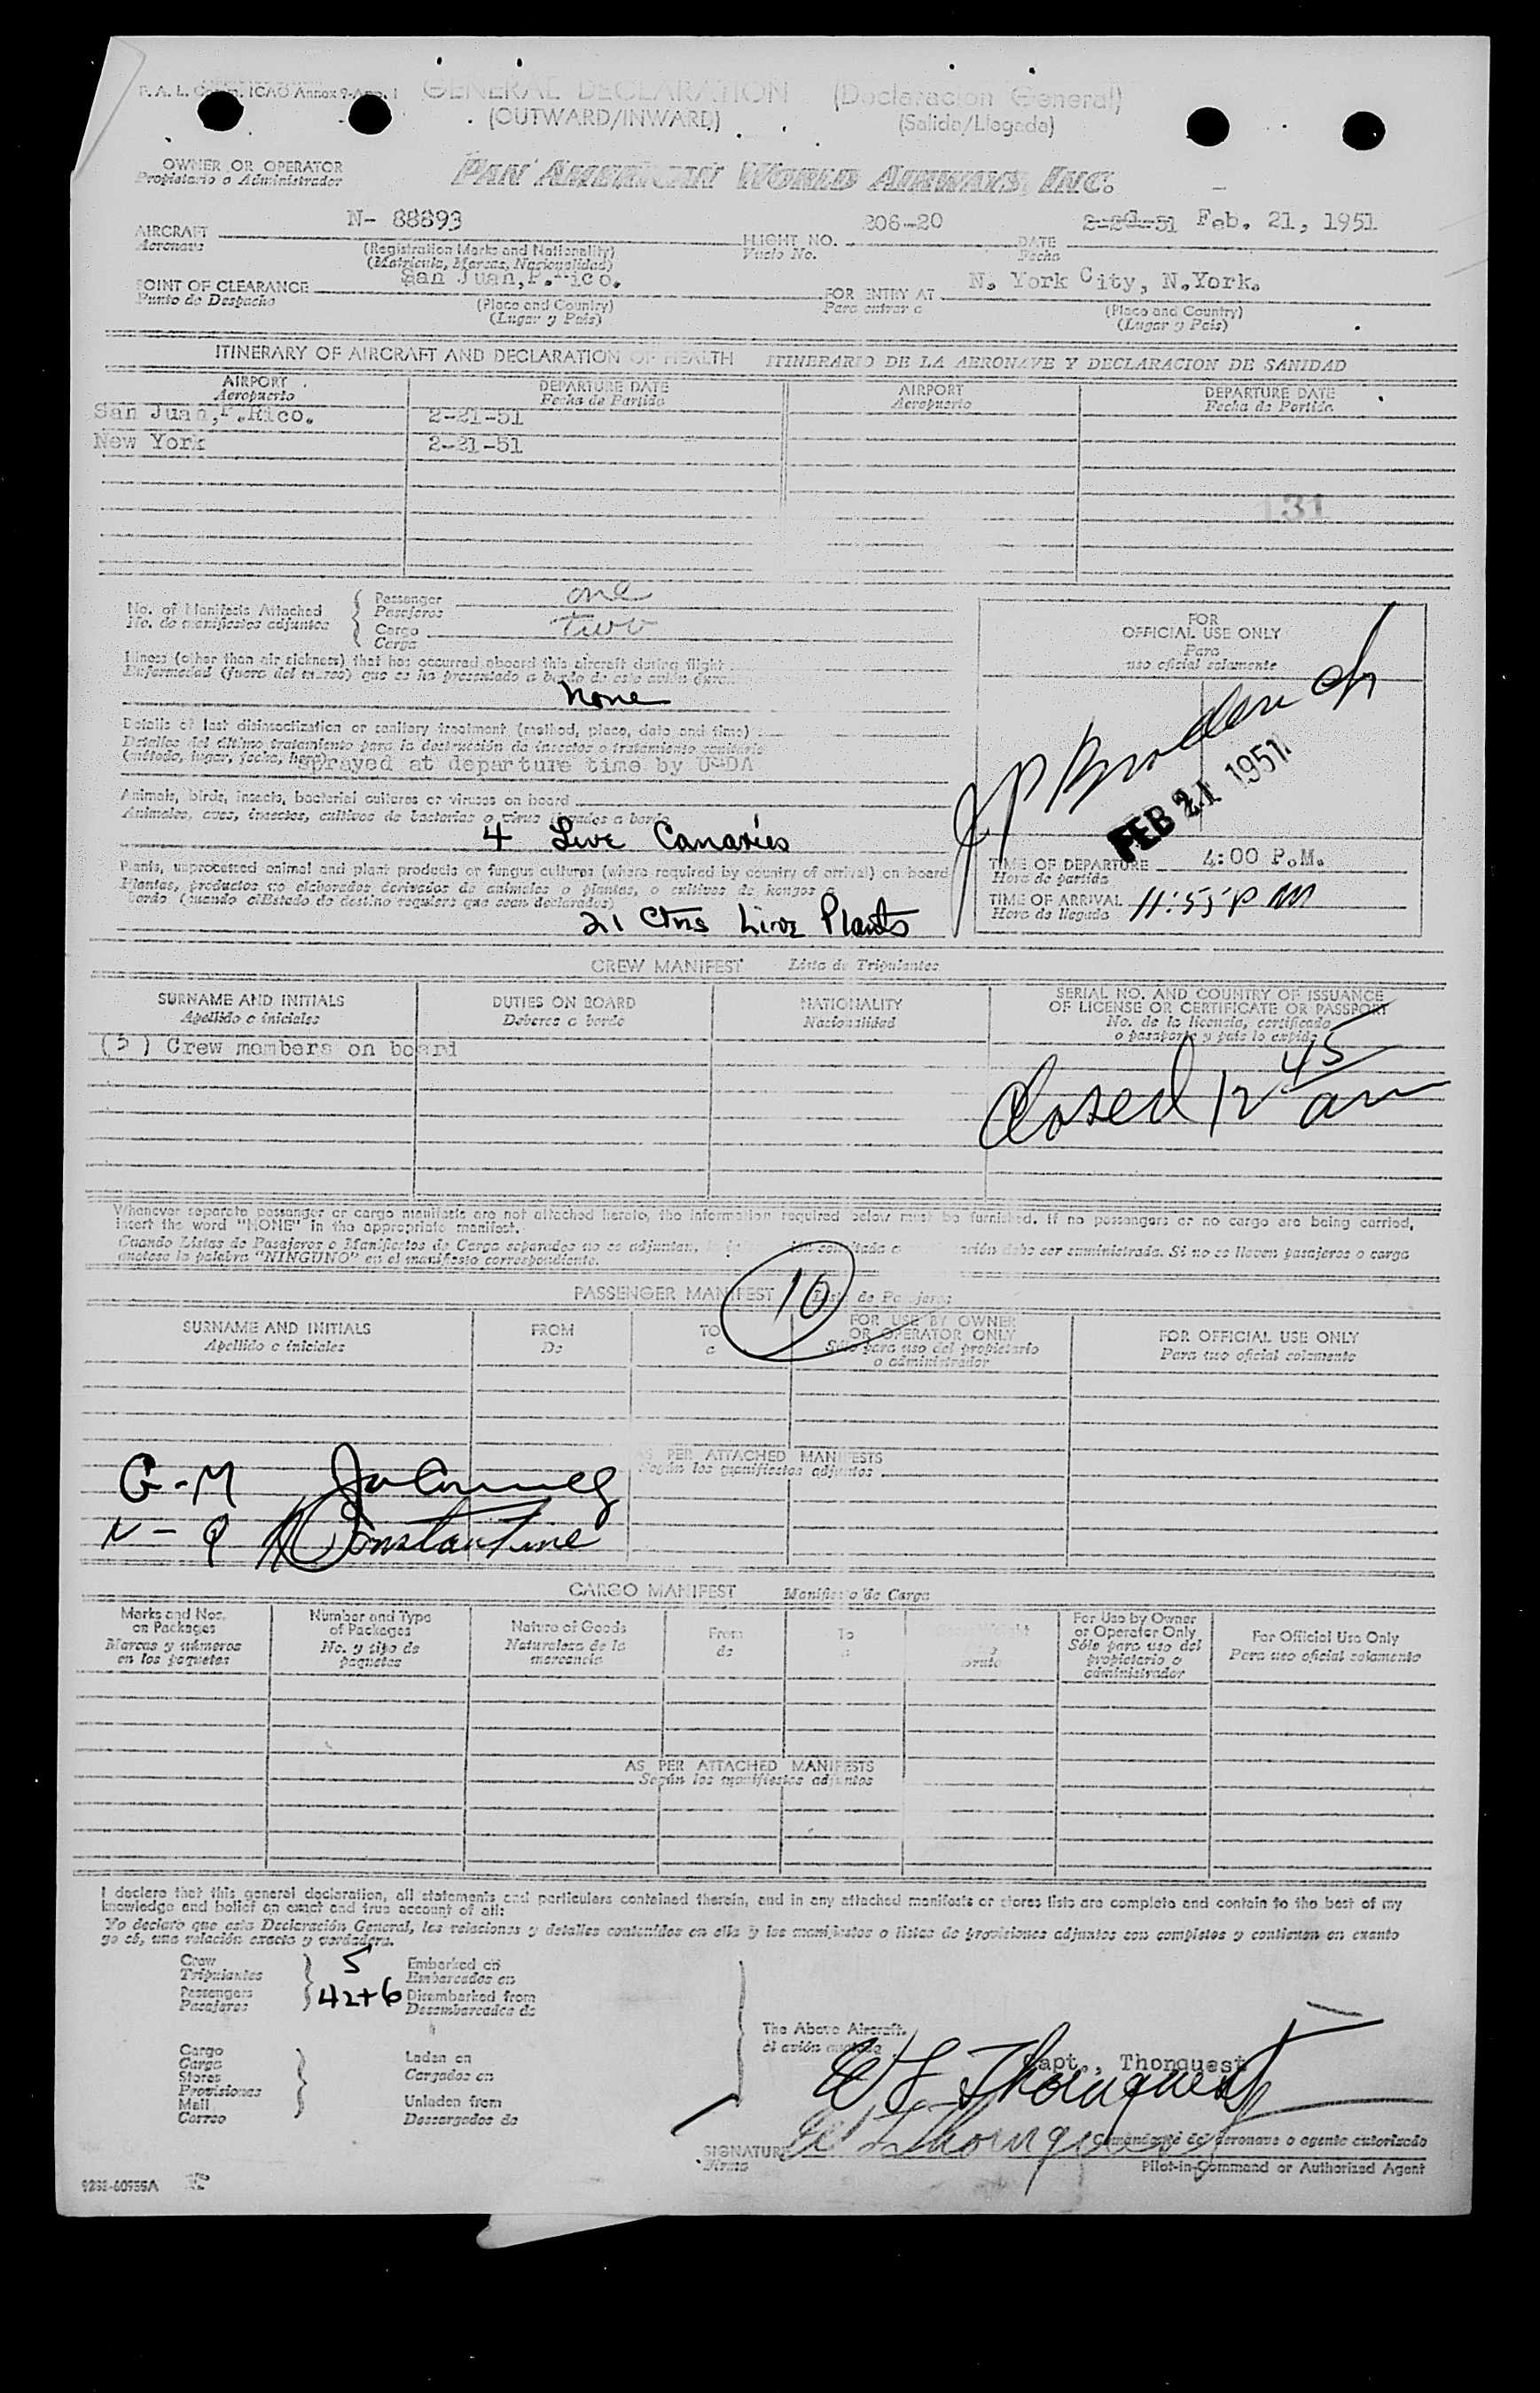 F. A. L. Comm. ICAO Annex 9-App. 1
GENERAL DECLARATION (Declaracion General)
(OUTWARD/INWARD) (Salida/Llegada)
OWNER OR OPERATOR
Propietario o Administrador
PAN AMERICAN WORLD AIRWAYS, INC.
AIRCRAFT N- 88893 FLIGHT NO. 206-20 DATE Feb. 21, 1951
Aeronave Vuelo No. Fecha
(Registration Marks and Nationality)
(Matricula, Marcas, Nacionalidad)
POINT OF CLEARANCE San Juan,P.Rico. FOR ENTRY AT N. York City, N.York.
Punto de Despacho Para entrar a
(Place and Country) (Place and Country)
(Lugar y Pais) (Lugar y Pais)
ITINERARY OF AIRCRAFT AND DECLARATION OF HEALTH ITINERARIO DE LA AERONAVE Y DECLARACION DE SANIDAD
AIRPORT DEPARTURE DATE AIRPORT DEPARTURE DATE
Aeropuerto Fecha de Partida Aeropuerto Fecha de Partida
San Juan,P.Rico. 2-21-51
New York 2-21-51
131
No. of Manifests Attached
No. de manifiestos adjuntos
Passenger one
Pasajeros
Cargo two
Carga
Illness (other than air sickness) that has occurred aboard this aircraft during flight
Enfermedad (fuera del mareo) que se ha presentado a bordo de este avión
None
Details of last disinsectization or sanitary treatment (method, place, date and time)
Detalles del último tratamiento para la destrucción de insectos o tratamiento sanitario
(método, lugar, fecha, hora)
Sprayed at departure time by USDA
Animals, birds, insects, bacterial cultures or viruses on board
Animales, aves, insectos, cultivos de bacterias o virus cargados a bordo
4 Live Canaries
Plants, unprocessed animal and plant products or fungus cultures (where required by country of arrival) on board
Plantas, productos no elaborados derivados de animales o plantas, o cultivos de hongos a
bordo (cuando el Estado de destino requiera que sean declarados)
21 Ctns Live Plants
FOR
OFFICIAL USE ONLY
Para
uso oficial solamente
FEB 21 1951
TIME OF DEPARTURE 4:00 P.M.
Hora de partida
TIME OF ARRIVAL 11:55 P M
Hora de llegada
CREW MANIFEST Lista de Tripulantes
SURNAME AND INITIALS DUTIES ON BOARD NATIONALITY SERIAL NO. AND COUNTRY OF ISSUANCE
OF LICENSE OR CERTIFICATE OR PASSPORT
Apellido e iniciales Deberes a bordo Nacionalidad No. de la licencia, certificado
o pasaporte y pais lo expide
(5) Crew members on board
Closed 12 45 am
Whenever separate passenger or cargo manifests are not attached hereto, the information required below must be furnished. If no passengers or no cargo are being carried,
insert the word "NONE" in the appropriate manifest.
Cuando Listas de Pasajeros o Manifiestos de Carga separados no se adjuntan, debe ser suministrada. Si no se lleven pasajeros o carga
anotese la palabra "NINGUNO" en el manifiesto correspondiente.
10
PASSENGER MANIFEST Lista de Pasajeros
SURNAME AND INITIALS FROM TO FOR USE BY OWNER
OR OPERATOR ONLY FOR OFFICIAL USE ONLY
Apellido e iniciales De a Sólo para uso del propietario
o administrador Para uso oficial solamente
AS PER ATTACHED MANIFESTS
Según los manifiestos adjuntos
G-M
N-Q Constantine
CARGO MANIFEST Manifiesto de Carga
Marks and Nos. on Packages Number and Type of Packages Nature of Goods From To For Use by Owner or Operator Only For Official Use Only
Marcas y números en los paquetes No. y tipo de paquetes Naturaleza de la mercancia de a bruto Sólo para uso del propietario o administrador Para uso oficial solamente
AS PER ATTACHED MANIFESTS
Según los manifiestos adjuntos
I declare that this general declaration, all statements and particulars contained therein, and in any attached manifests or stores lists are complete and contain to the best of my
knowledge and belief an exact and true account of all:
Yo declaro que esta Declaración General, las relaciones y detalles contenidos en ella y los manifiestos o listas de provisiones adjuntos son completos y contienen en cuanto
yo sé, una relación exacta y verdadera.
Crew 5 Embarked on
Tripulantes Embarcados en
Passengers 42+6 Disembarked from
Pasajeros Desembarcados de
The Above Aircraft.
Cargo
Carga
Stores
Provisiones
Mail
Correo
Laden on
Cargados en
Unladen from
Descargados de
Capt., Thonquest
W F Thonquest
SIGNATURE
Firma
Comandante de aeronave o agente autorizado
Pilot-in-Command or Authorized Agent